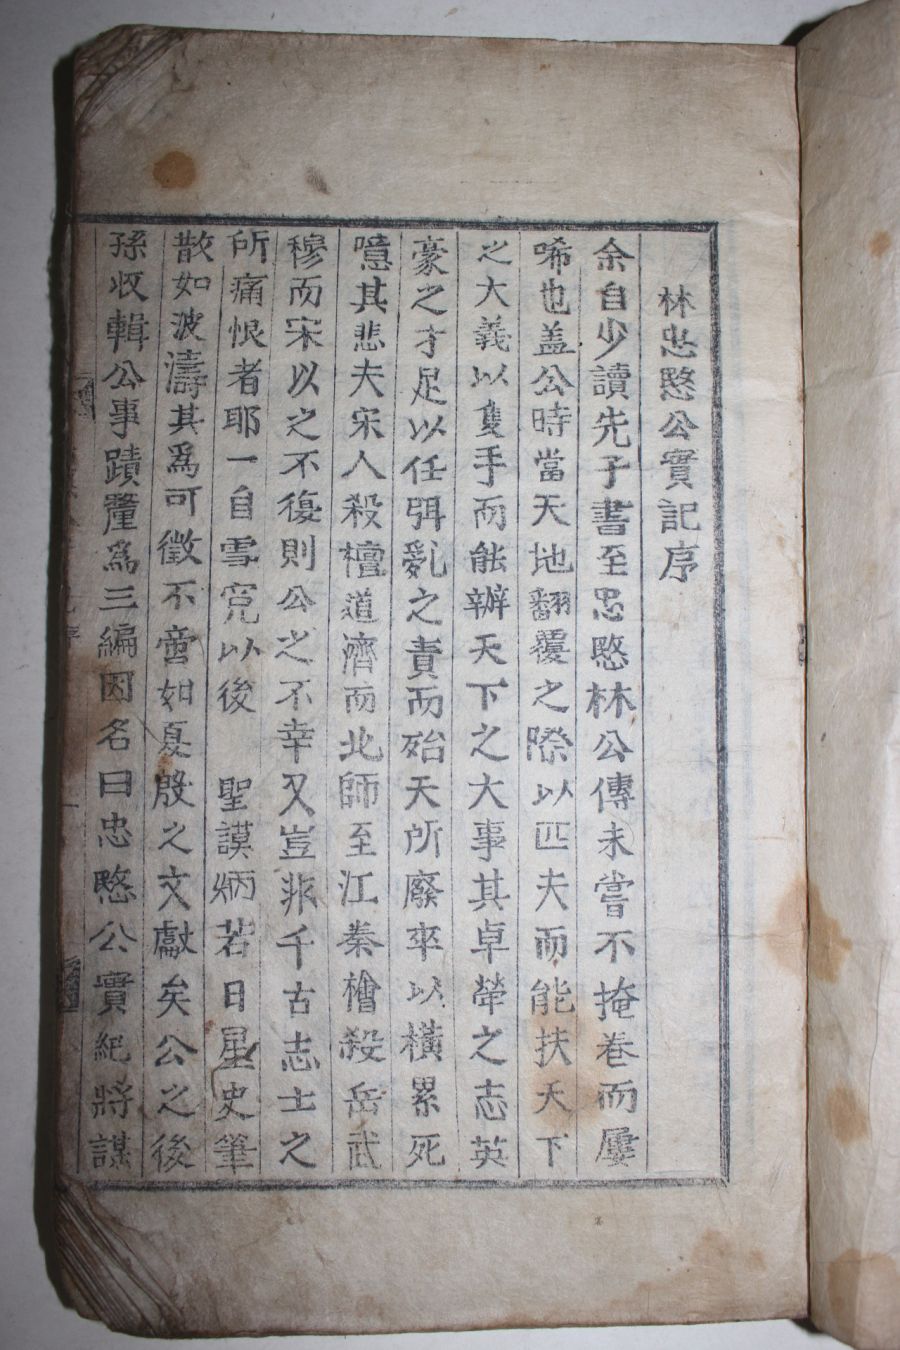 林忠愍公實記序
余自少讀先子書至忠愍林公傳未嘗不掩卷而屢
唏也盖公時當天地翻覆之際以匹夫而能扶天下
之大義以隻手而能辦天下之大事其卓犖之志英
豪之才足以任弭亂之責而殆天所廢卒以橫累死
噫其悲夫宋人殺檀道濟而北師至江秦檜殺岳武
穆而宋以之不復則公之不幸又豈非千古志士之
所痛恨者耶一自雪寃以後 聖謨炳若日星史筆
散如波濤其爲可徵不啻如夏殷之文獻矣公之後
孫收輯公事蹟釐爲三編因名曰忠愍公實紀將謀